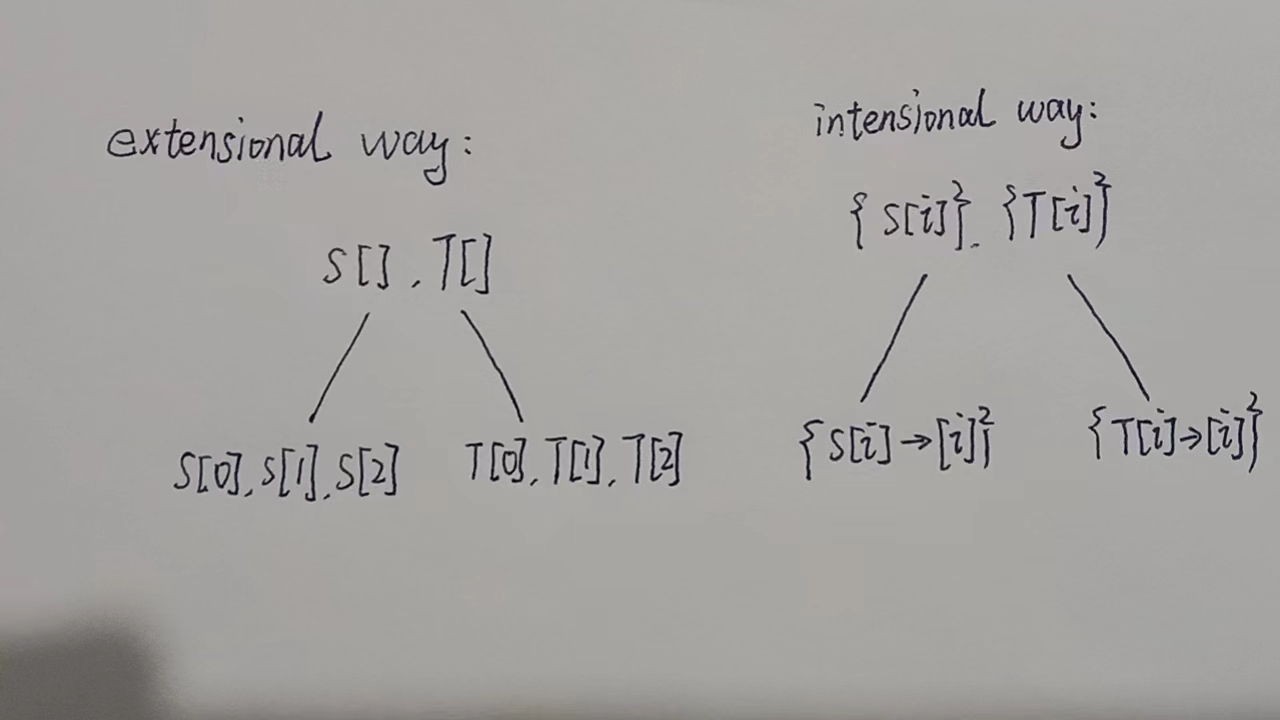 extensional way:
S[], T[]
S[0], S[1], S[2] T[0], T[1], T[2]
intensional way:
{S[i]}, {T[i]}
{S[i]→[i]} {T[i]→[i]}